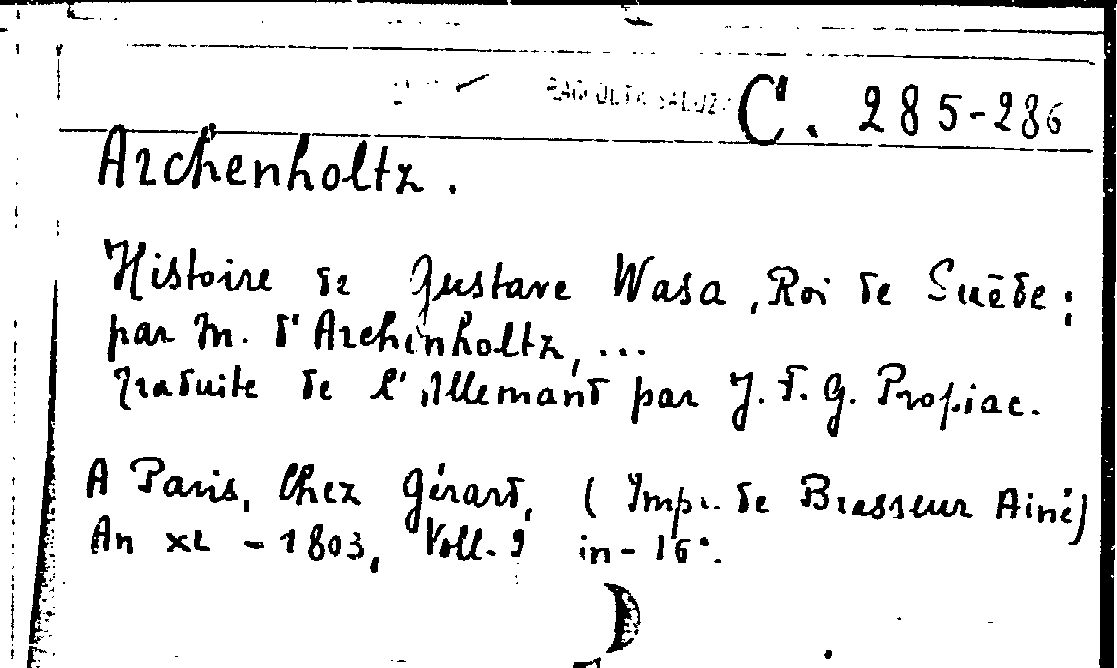 RACCOLTA SALUZZO C. 285-286
Archenholtz.
Histoire de Gustave Wasa, Roi de Suède;
par M. d'Archinholtz, ...
traduite de l'Allemand par J. F. G. Propiac.
A Paris, chez Gérard, (Impr. de Brasseur Ainé)
An XI - 1803, Voll. 2 in-16°.